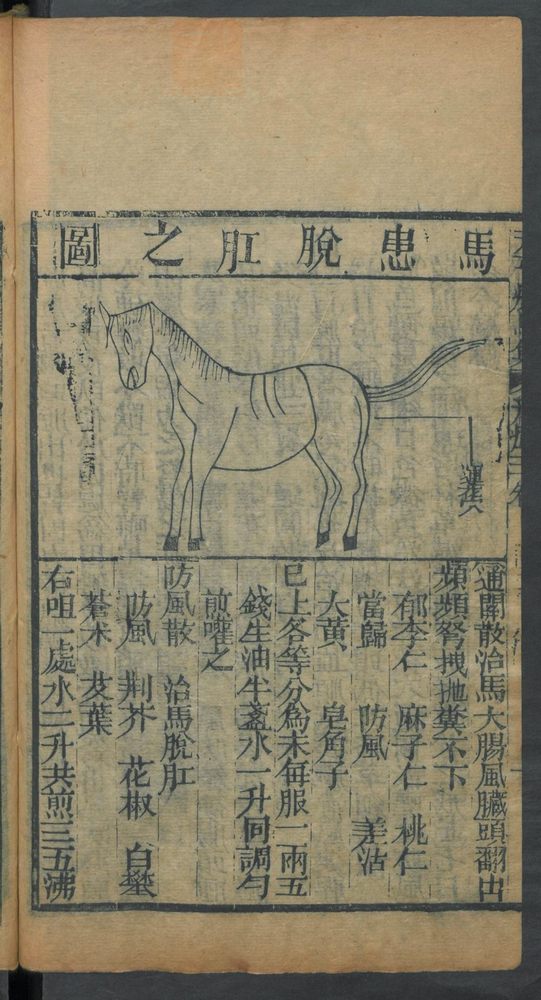 馬患脫肛之圖
通關散治馬大腸風臓頭翻出
頻頻弩拽抛糞不下
郁李仁 麻子仁 桃仁
當歸 防風 羌活
大黄 皂角子
已上各等分為末每服一兩五
錢生油半盞水一升同調勻
前嚾之
防風散 治馬脫肛
防風 荆芥 花椒 白礬
蒼术 艾葉
右咀一處水二升共煎三五沸